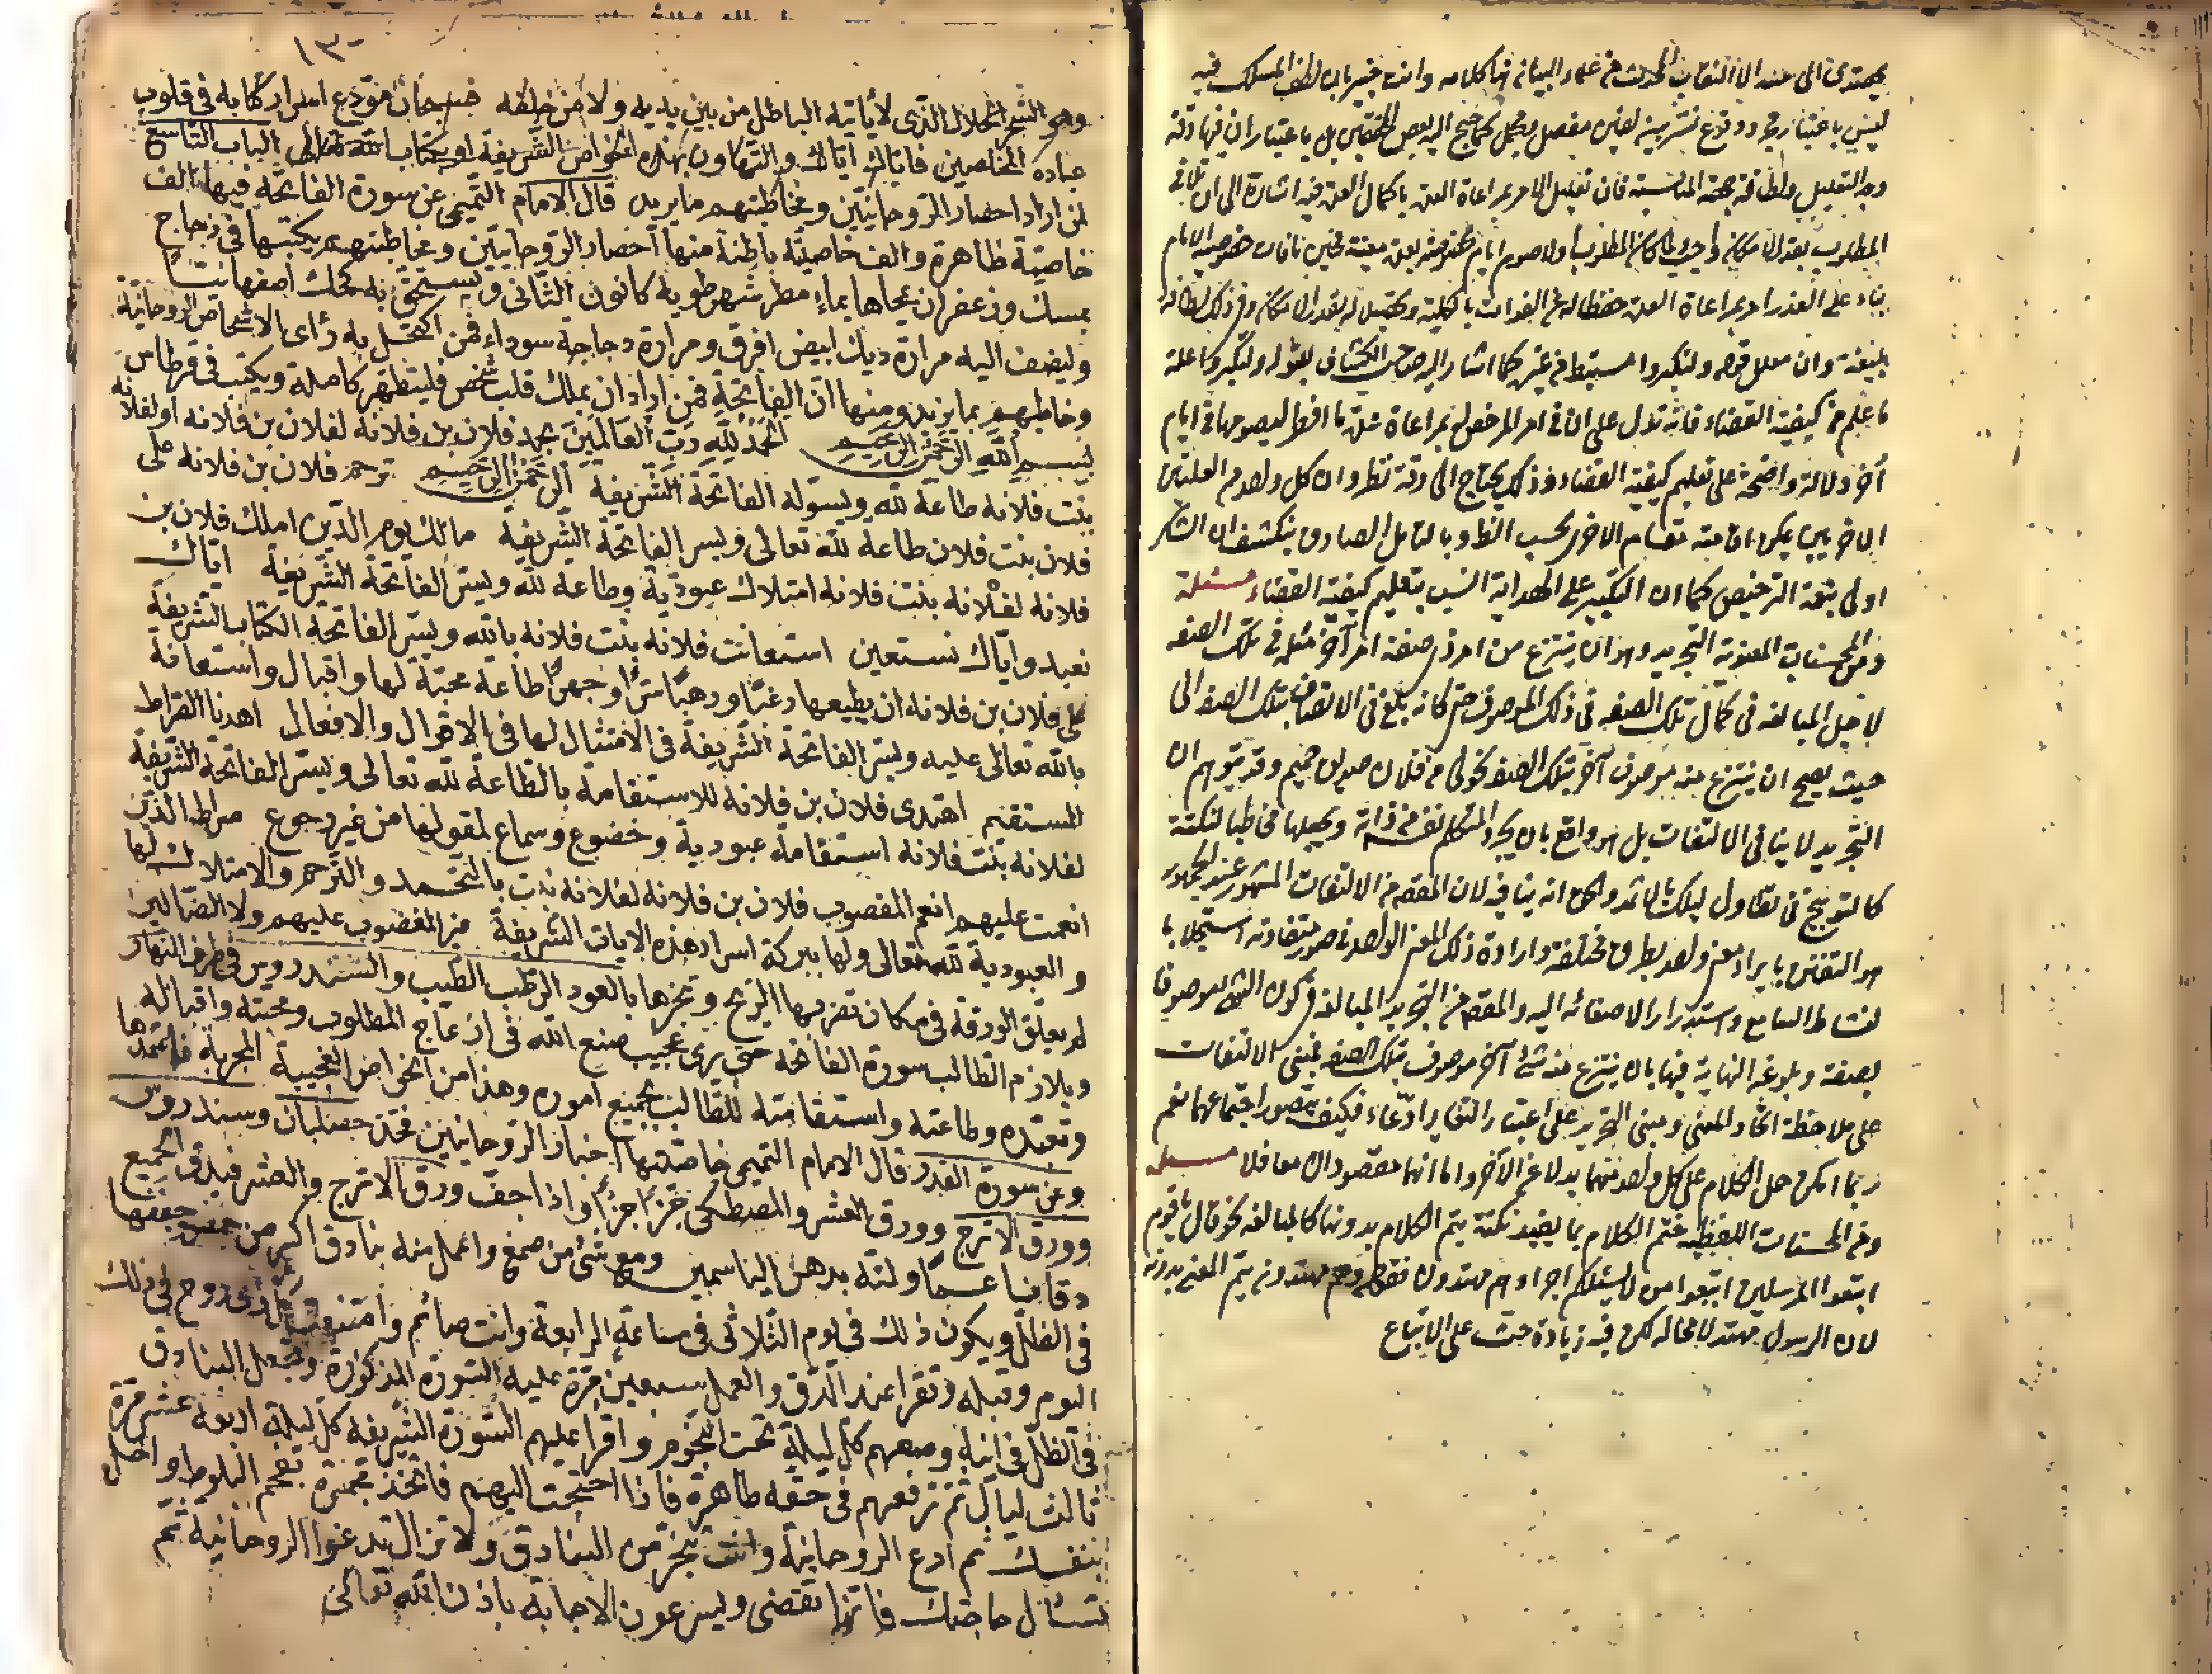 يهتدى الى الا النقاب المحدث من علماء البيان كلامه وانت خبير بان لطف المسلك فيه
ليس باعتبار بل باعتبار ان فيها دقة
وجه التعليل ولطافة جهة المناسبة فان تعليل الامر بمراعاة العدة باكمال العدة فيه اشارة الى ان
المطلوب بقدر الامكان
بناء على العذر امر بمراعاة العدة حفظا له عن الفوات بالكلية وتحصيلا له بقدر الامكان
وان معلل قوله ولتكبروا مستنبط من غيره كما اشار اليه صاحب الكشاف بقوله ولتكبروا علة
ما علم من كيفية القضاء فانه تدل على ان في امر المرخص له بمراعاة عدة ما افطر ليصومها في ايام
أخر دلالة واضحة على تعليم كيفية القضاء وذلك يحتاج الى دقة نظر وان كل واحد من العلتين
الاخريين يمكن اقامته مقام الاخرى بحسب الظ وبالتأمل الصادق ينكشف ان الشكر
اولى بنعمة الترخيص كما ان التكبير على الهداية انسب بتعليم كيفية القضاء مسئلة
ومن المحسنات المعنوية التجريد وهو ان ينتزع من امر ذى صفة امر آخر مثله فى تلك الصفة
لاجل المبالغة فى كمال تلك الصفة فى ذلك الموصوف حتى كانه بلغ فى الاتصاف بتلك الصفة الى
حيث يصح ان ينتزع منه موصوف آخر بتلك الصفة نحو لى من فلان صديق حميم وقد يتوهم ان
التجريد لا ينافى الالتفات بل هو واقع بان يجرد المتكلم نفسه من ذاته ويجعلها مخاطبا لنكتة
كالتوبيخ فى تطاول ليلك بالاثمد والحق انه ينافيه لان المقصد من الالتفات المشهور عند الجمهور
هو التفنن بايراد معنى واحد بطرق مختلفة وارادة ذلك المعنى الواحد فى صور متفاوتة استجلابا
لنشاط السامع واستدرارا لاصغائه اليه والمقصد من التجريد المبالغة فى كون الشئ موصوفا
بصفة وبلوغه النهاية فيها بان ينتزع منه شئ آخر موصوف بتلك الصفة فمبنى الالتفات
على ملاحظة اتحاد المعنى ومبنى التجريد على اعتبار التغاير ادعاء فكيف يتصور اجتماعهما نعم
ربما امكن حمل الكلام على كل واحد منهما بدلا عن الآخر واما انهما مقصودان معا فلا مسئله
ومن المحسنات اللفظية ختم الكلام بما يفيد نكتة يتم الكلام بدونها كالمبالغة نحو قال يا قوم
اتبعوا المرسلين اتبعوا من لا يسئلكم اجرا وهم مهتدون فقوله وهم مهتدون يتم المعنى بدونه
لان الرسول مهتد لا محالة لكن فيه زيادة حث على الاتباع
١٣٠
وهو الحلال الذى لا يأتيه الباطل من بين يديه ولا من خلفه فسبحان مودع اسرار كتابه فى قلوب
عباده المخلصين فاياك اياك والتهاون بهذه الخواص الشريفة تعالى الباب التاسع
لمن اراد احضار الروحانيين ومخاطبتهم بما يريد قال الامام التميمى عن سورة الفاتحة فيها الف
خاصية ظاهرة والف خاصية باطنة منها احضار الروحانيين ومخاطبتهم يكتبها فى زجاج
بمسك وزعفران يمحاها بماء مطر شهر طوبه كانون الثانى به كحلك اصفهانيا
وليضف اليه مرارة ديك ابيض افرق ومرارة دجاجة سوداء فمن اكتحل به رأى الاشخاص الروحانية
وخاطبهم بما يريد ومنها ان الفاتحة فمن اراد ان يملك قلب شخص فليتطهر كاملة ويكتب فى قرطاس
بسم الله الرحمن الرحيم الحمد لله رب العالمين بحمد فلان بن فلانه لفلان بن فلانه او لفلانه
بنت فلانه طاعة لله ولسر الفاتحة الشريفة الرحمن الرحيم ترحم فلان بن فلانه على
فلان بنت فلان طاعة لله تعالى ولسر الفاتحة الشريفة مالك يوم الدين املك فلان بن
فلانه لفلانه بنت فلانه امتلاك عبودية وطاعة لله ولسر الفاتحة الشريفة اياك
نعبد واياك نستعين استعانت فلانه بنت فلانه بالله ولسر الفاتحة الكتاب الشريفة
على فلان بن فلانه ان يطيعها رغبا ورهبا سرا وجهرا طاعة محبة لها واقبال واستعانة
بالله تعالى عليه ولسر الفاتحة الشريفة فى الامتثال لها فى الاقوال والافعال اهدنا الصراط
المستقيم اهتدى فلان بن فلانه للاستقامة بالطاعة لله تعالى ولسر الفاتحة الشريفة
لفلانه بنت فلانه استقامة عبودية وخضوع وسماع لقولها من غير رجوع صراط الذين
انعمت عليهم انعم المغصوب فلان بن فلانه لفلانه بنت بالتحمد والترحم والامتلاك لها
والعبودية لله تعالى ولها ببركة اسرار هذه الايات الشريفة غير المغضوب عليهم ولا الضالين
ثم يعلق الورقة فى مكان تضربها الريح وتبخرها بالعود الرطب الطيب والسندروس فى طرف النهار
ويلازم الطالب سورة الفاتحة حتى يرى عجيب صنع الله فى انزعاج المطلوب ومحبته واقباله
وتعبده وطاعته واستقامته للطالب بجميع اموره وهذا من الخواص العجيبة المجربة
وعن سورة القدر قال الامام التميمى خاصتها احضار الروحانيين فخذ حصلبان وسندروس
وورق الاترج وورق العشر والمصطكى جزءا جزءا واذا جف ورق الاترج والعشر فيدق الجميع
دقا ناعما ولته بدهن الياسمين ومع شئ من صمغ واعمل منه بنادقا اكبر من جففها
فى الظل ويكون ذلك فى يوم الثلاثى فى ساعة الرابعة وانت صائم وامتنعت ذى روح فى ذلك
اليوم وقبله وتقرا عند الدق والعمل سبعين مرة عليه السورة المذكورة وتجعل البنادق
فى الظل فى انية وضعهم كل ليلة تحت النجوم واقرا عليهم السورة الشريفة كل ليلة اربعة عشر مرة
ثالث ليال ثم ترفعهم فى حقة طاهرة فاذا احتجت اليهم فاتخذ مجمرة بفحم البلوط
بنفسك ثم ادع الروحانية وانت تبخر من البنادق ولا تزال تدعوا الروحانية ثم
تسأل حاجتك فانها تقضى ويسرعون الاجابة باذن الله تعالى